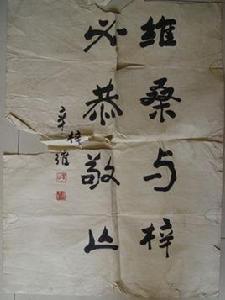 維桑与梓
必恭敬止